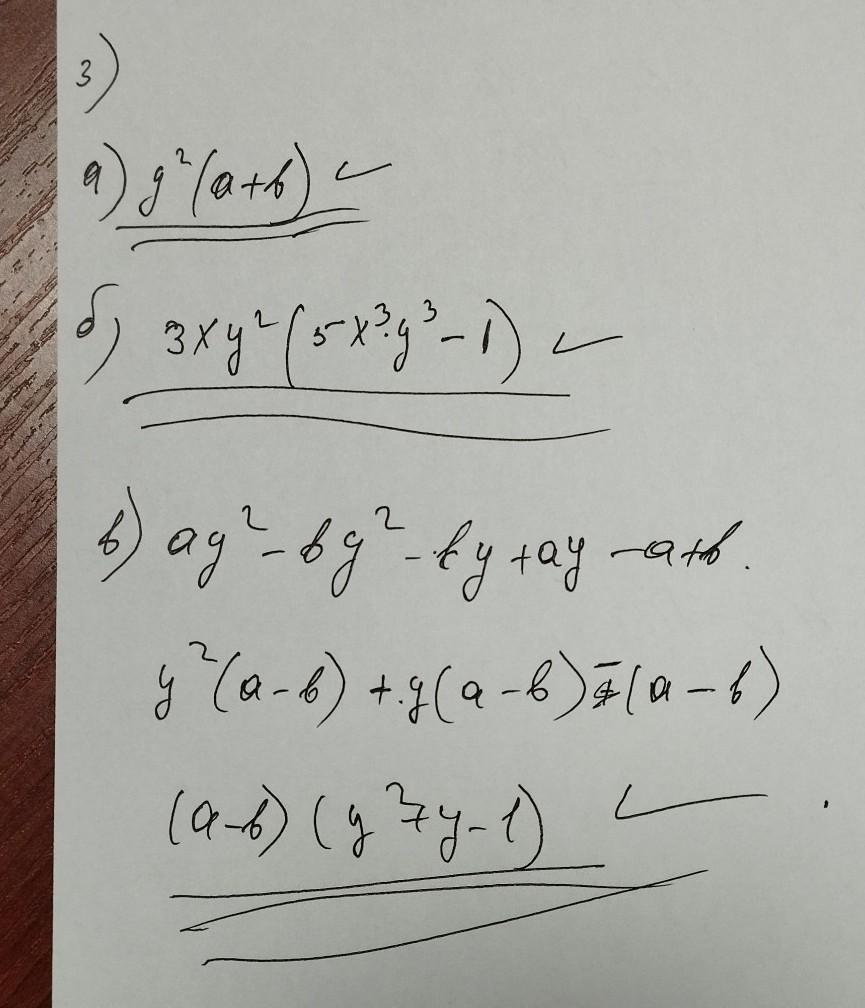 3)
а) y²(a+b) ✓
б) 3xy²(5x³·y³-1) ✓
в) ay²-by²-by+ay-a+b.
y²(a-b)+y(a-b)-(a-b)
(a-b)(y²+y-1) ✓